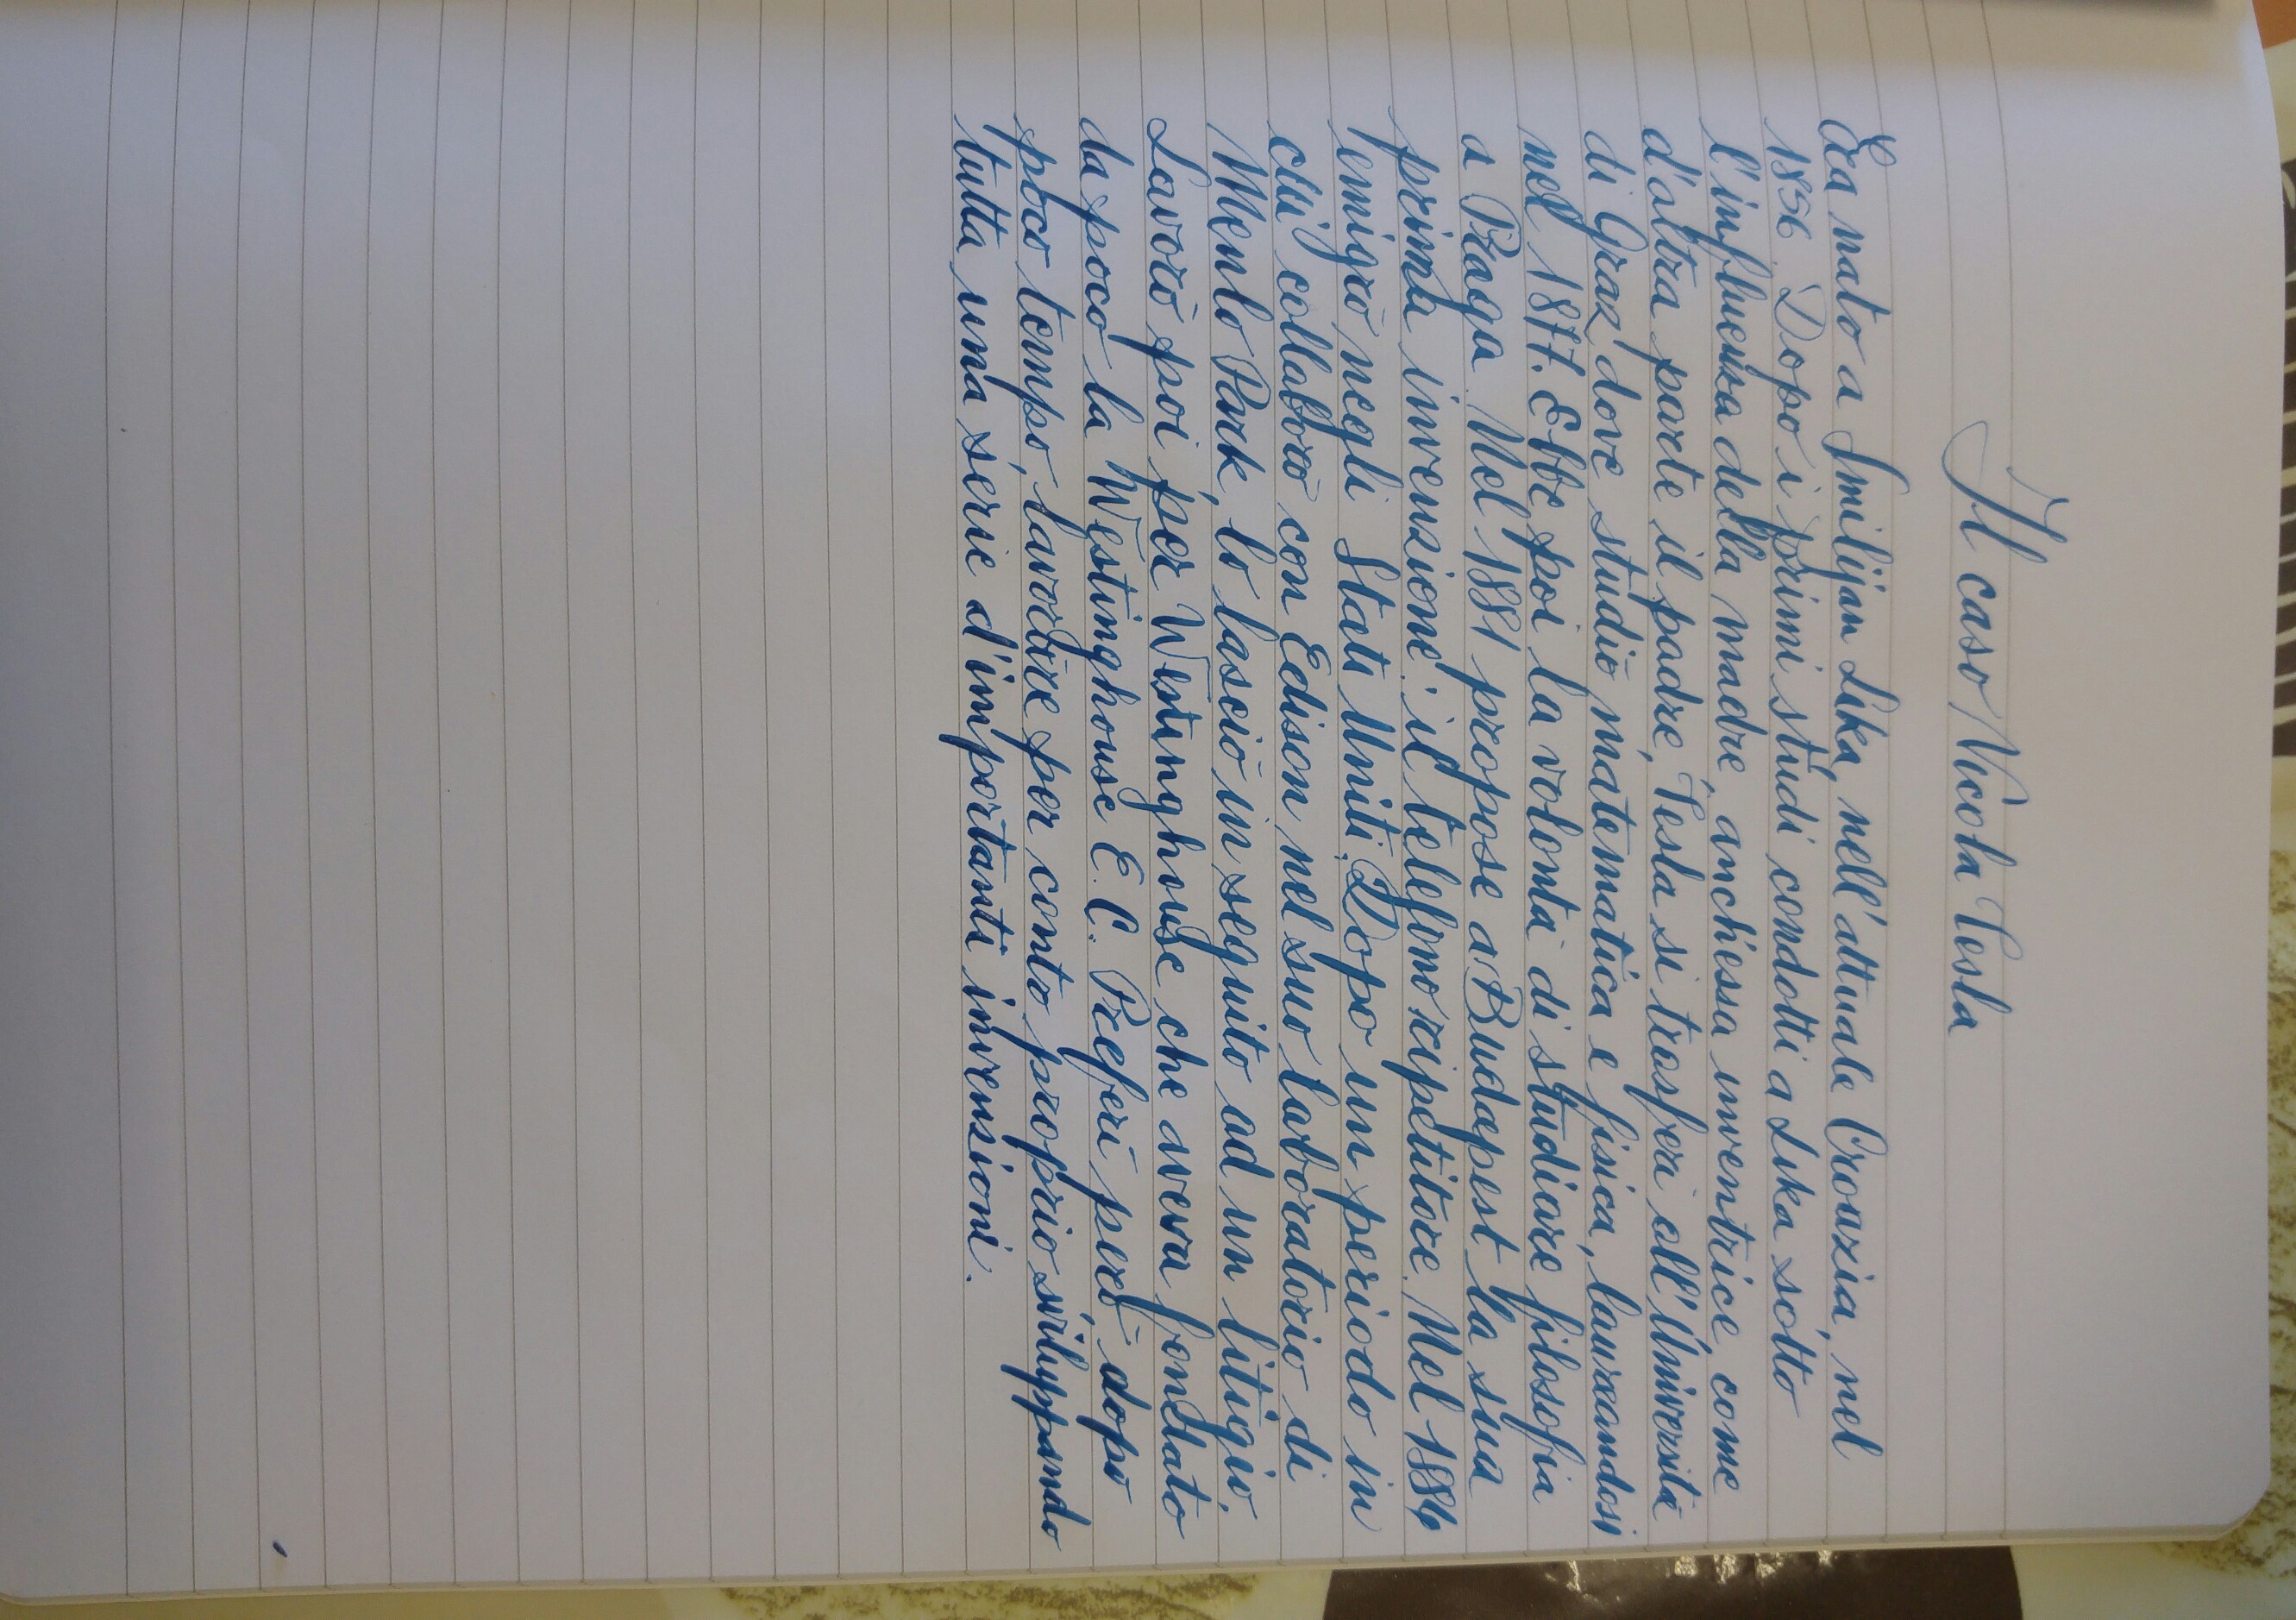 Il caso Nicola Tesla
Era nato a Smilijan Lika, nell'attuale Croazia, nel
1856. Dopo i primi studi condotti a Lika sotto
l'influenza della madre, anch'essa inventrice, come
d'altra parte il padre, Tesla si trasferì all'Università
di Graz dove studiò matematica e fisica, laureandosi
nel 1877. Ebbe poi la volontà di studiare filosofia
a Praga. Nel 1881 propose a Budapest la sua
prima invenzione: il telefono ripetitore. Nel 1884
emigrò negli Stati Uniti. Dopo un periodo in
cui collaborò con Edison nel suo laboratorio di
Menlo Park, lo lasciò in seguito ad un litigio.
Lavorò poi per Westinghouse che aveva fondato
da poco la Westinghouse E. C. Preferì però dopo
poco tempo, lavorare per conto proprio, sviluppando
tutta una serie d'importanti invenzioni.